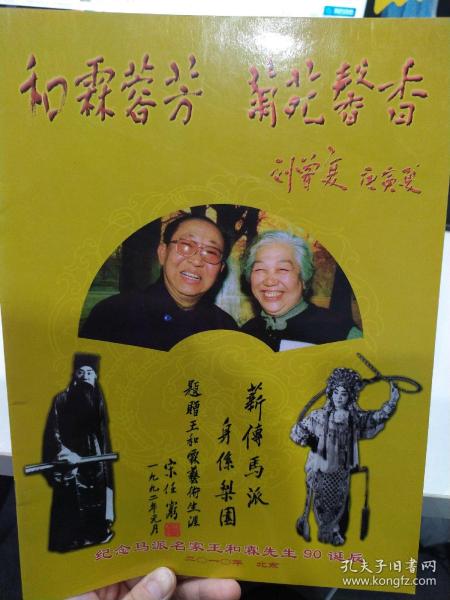 和霖蓉芳 菊苑馨香
刘曾复 庚寅夏
薪傳馬派
身係梨園
題贈王和霖藝術生涯
宋任窮
一九九二年元月
纪念马派名家王和霖先生90诞辰
二〇一〇年 北京
孔夫子旧书网